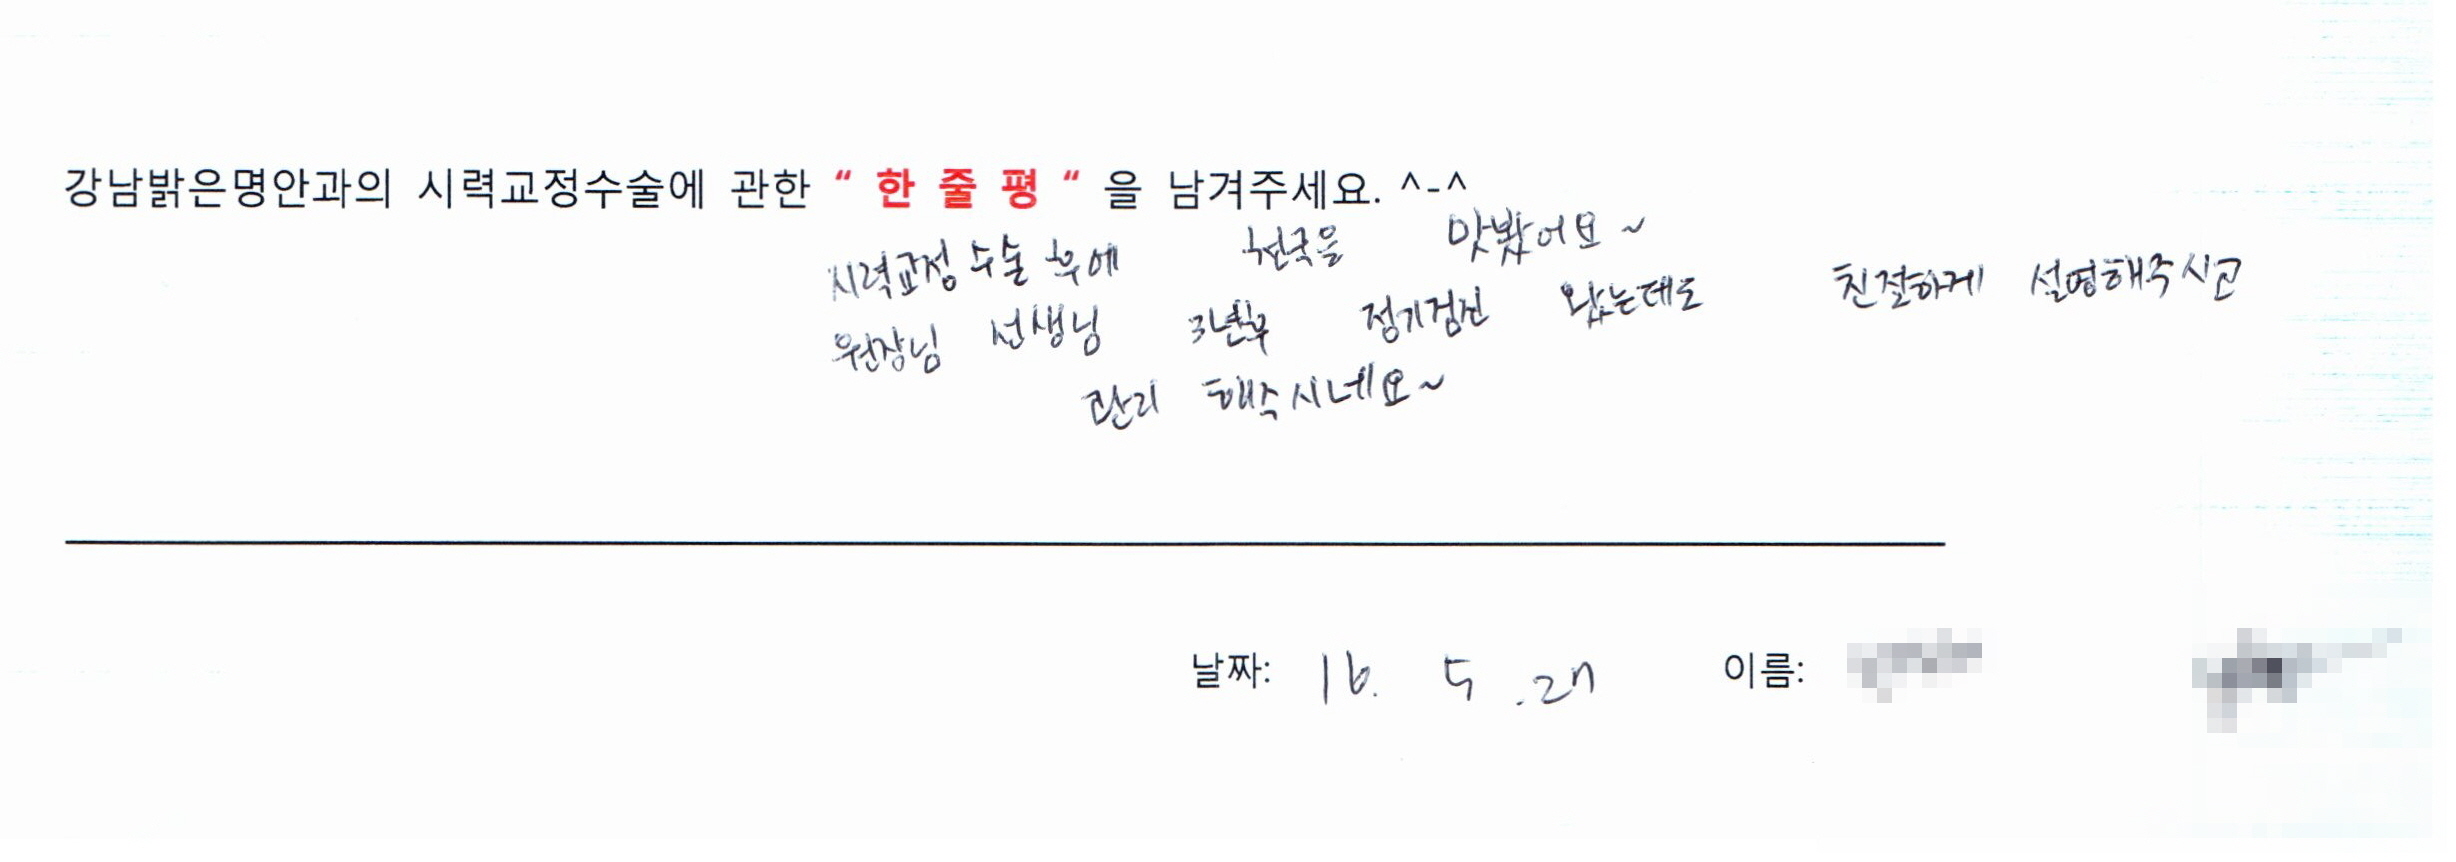 강남밝은명안과의 시력교정수술에 관한 “ 한 줄 평 “ 을 남겨주세요. ^-^
시력교정수술 후에 천국을 맛봤어요~
원장님 선생님 3년후 정기검진 왔는데도 친절하게 설명해주시고
관리 해주시네요~
날짜: 16. 5 .27 이름: